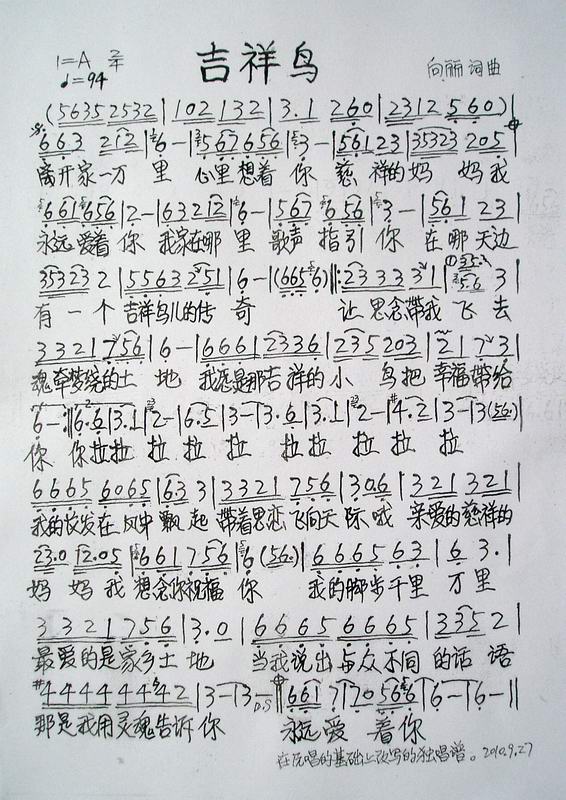 吉祥鸟
1=A 2/4
♩=94
向丽 词曲
(5635 2532 | 102 132 | 3.1 260 | 2312 560) |
663 212 | 6 - | 567 656 | 3 - | 561 23 | 35323 205 |
离开家一万 里 心里想着 你 慈 祥的妈 妈我
661 656 | 2 - | 632 212 | 6 - | 567 656 | 3 - | 561 23 |
永远爱着 你 我家在哪 里 歌声 指引 你 在哪天边
35323 2 | 5563 251 | 6 - | (6656) |: 23333 31 | 3 |
有 一 个 吉祥鸟儿的传 奇 让 思念带我 飞 去
3321 756 | 6 - | 6661 2336 | 235 203 | 21 73 |
魂牵梦绕的土 地 我愿是那吉祥的小 鸟把 幸福带给
6 - :| 6.6 | 3.1 | 2 - | 6.5 | 3 - | 3.6 | 3.1 | 2 - | #4.2 | 3 - | 3 (56.) |
你 你拉拉 拉 拉 拉 拉拉 拉 拉 拉
6665 6065 | 63 3 | 3321 756 | 306 | 321 321 |
我的故发在风中 飘 起 带着思恋飞向天 际哦 亲爱的慈祥的
23.0 12.05 | 661 756 | 6 (56.) | 6665 63 | 6 3. |
妈 妈 我 想念你祝福 你 我的脚步千里 万 里
3321 756 | 3.0 | 6665 6665 | 335 2 |
最爱的是家乡土 地 当我说出与众不同 的话 语
#4444 4442 | 3 - | 3 - D.S | 661 7 | 70 566 | 6 - | 6 - ||
那是我用灵魂告诉 你 永远 爱 着 你
在原唱的基础上改写的独唱谱。2010.9.27